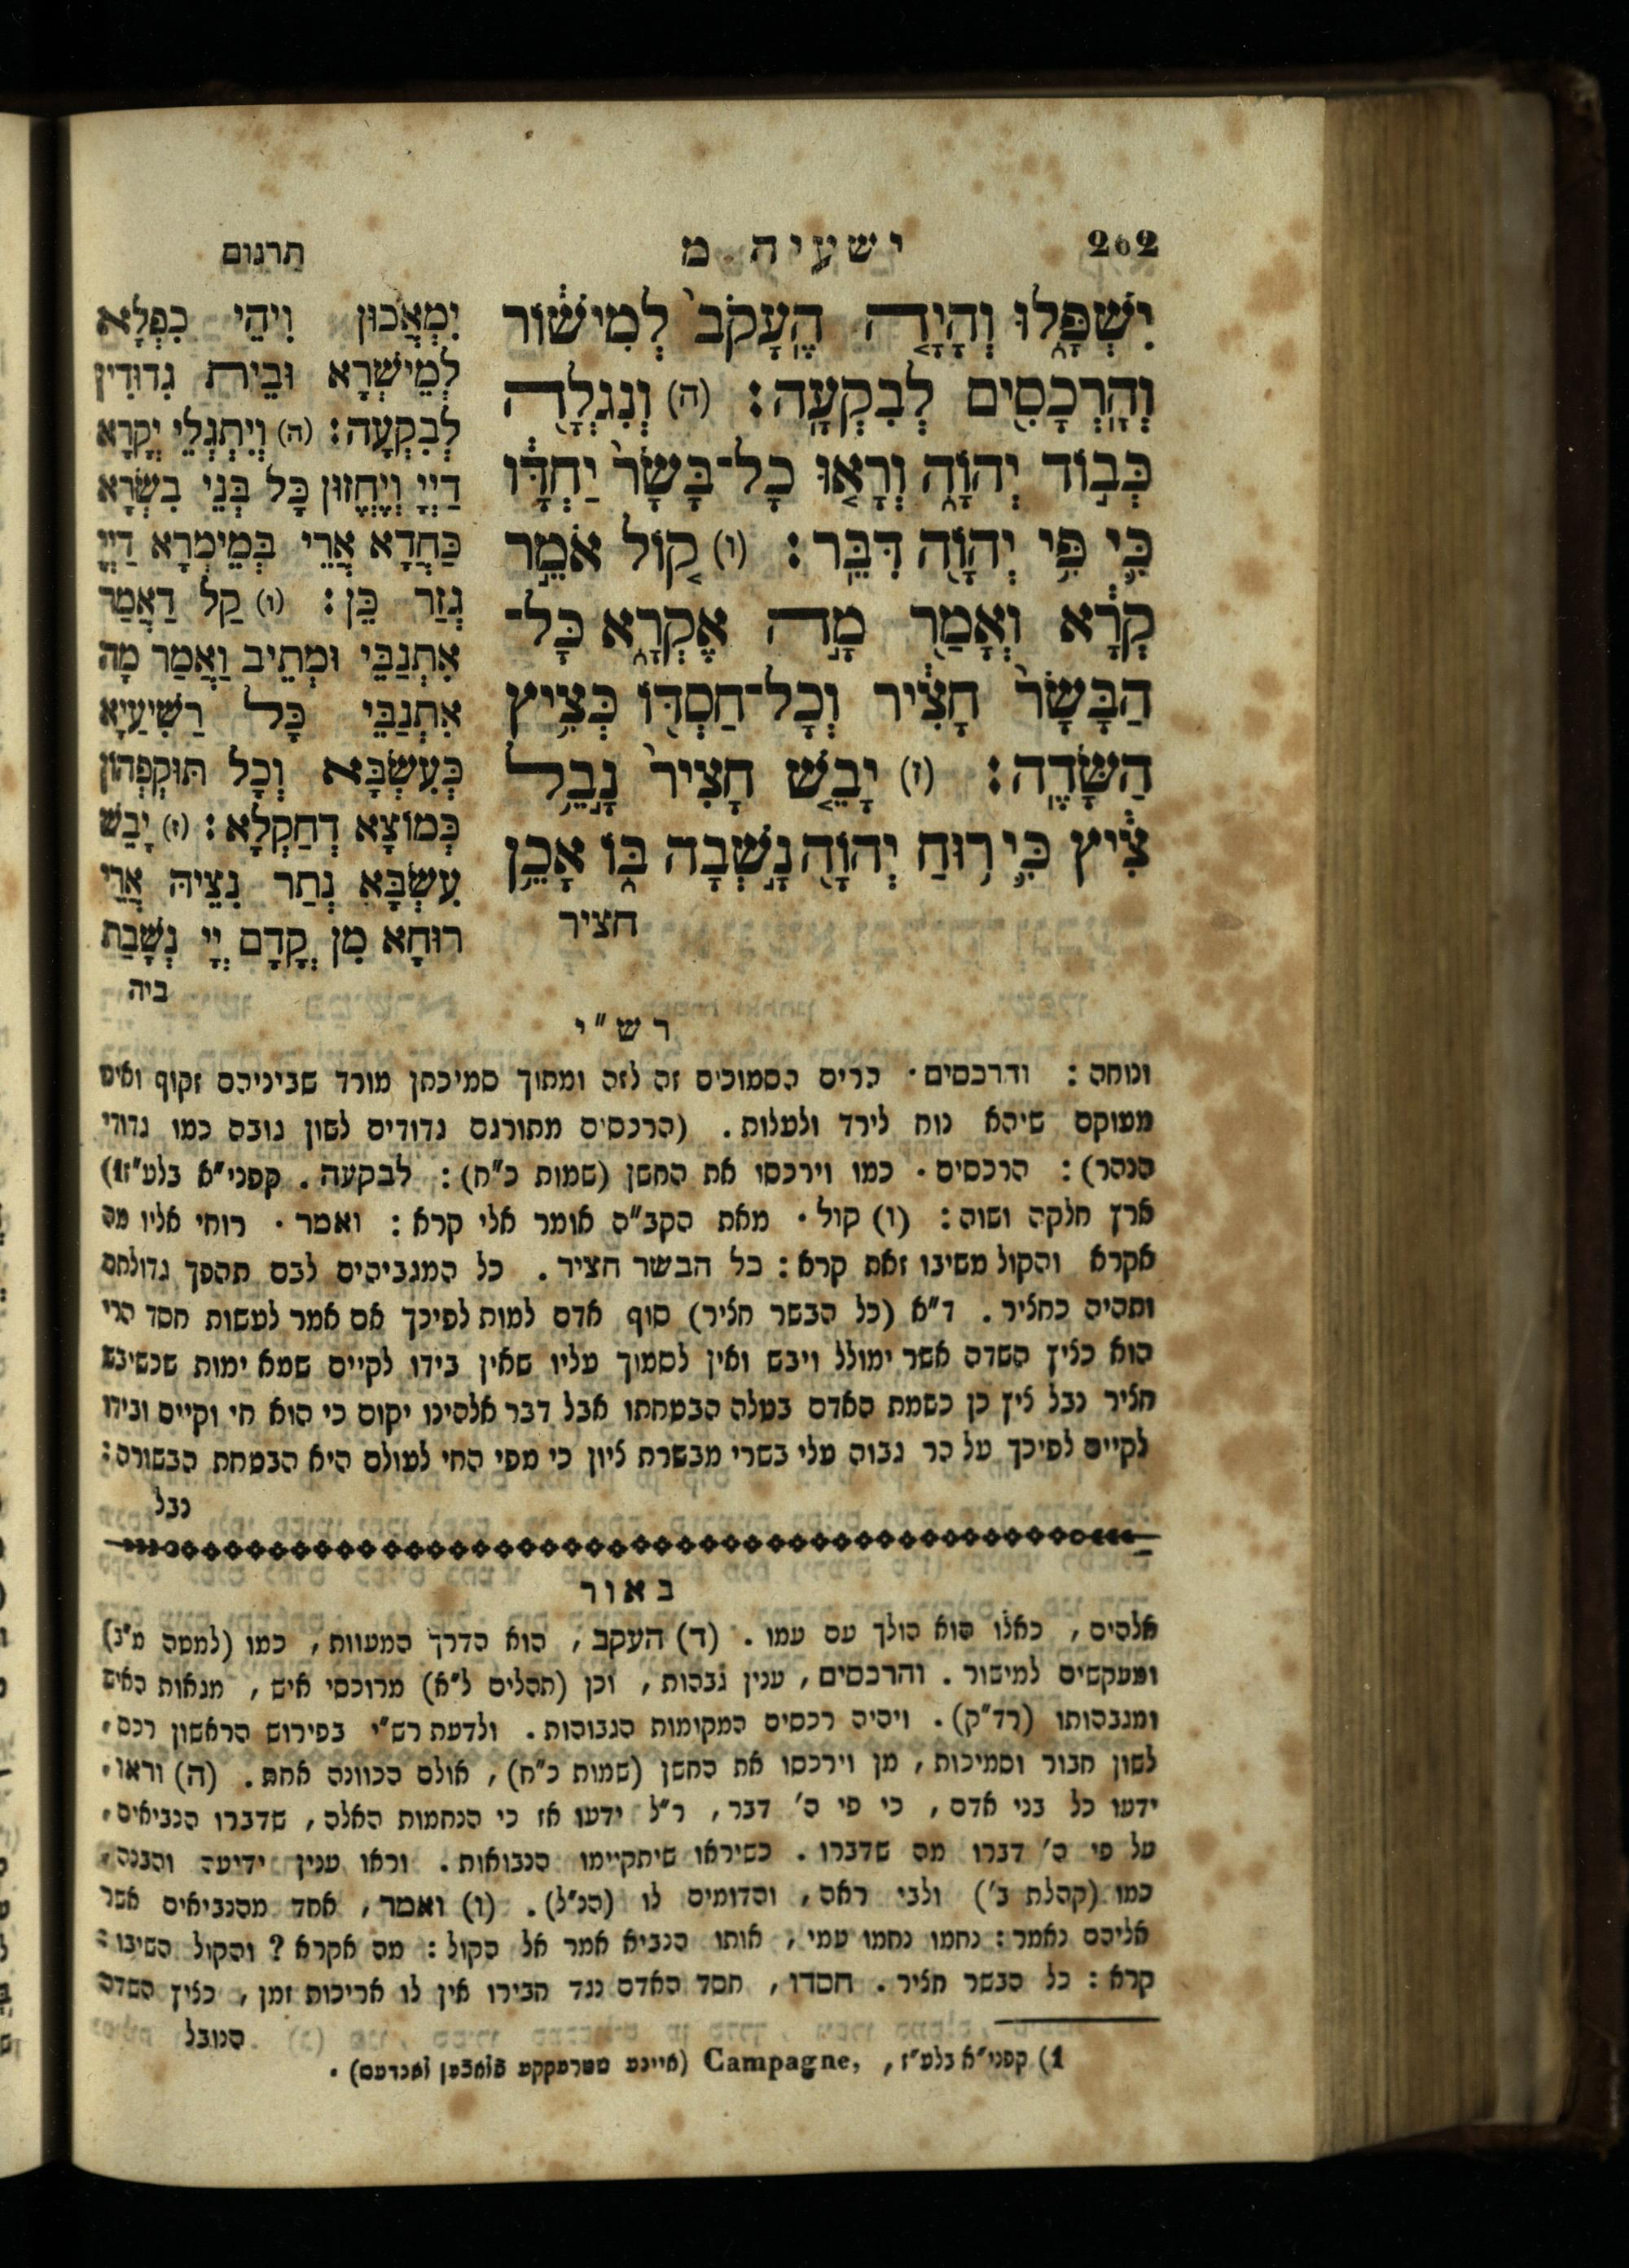 262
ישעיה מ
תרגום
יִשְׁפָּ֑לוּ וְהָיָ֤ה הֶֽעָקֹב֙ לְמִישׁ֔וֹר
וְהָֽרְכָסִ֖ים לְבִקְעָֽה׃ (ה) וְנִגְלָ֖ה
כְּב֣וֹד יְהוָ֑ה וְרָא֤וּ כָל־בָּשָׂר֙ יַחְדָּ֔ו
כִּ֛י פִּ֥י יְהוָ֖ה דִּבֵּֽר׃ (ו) ק֚וֹל אֹמֵ֣ר
קְרָ֔א וְאָמַ֖ר מָ֣ה אֶקְרָ֑א כָּל־
הַבָּשָׂר֙ חָצִ֔יר וְכָל־חַסְדּ֖וֹ כְּצִ֥יץ
הַשָּׂדֶֽה׃ (ז) יָבֵ֤שׁ חָצִיר֙ נָ֣בֵֽל
צִ֔יץ כִּ֛י ר֥וּחַ יְהוָ֖ה נָ֣שְׁבָה בּ֑וֹ אָכֵ֥ן
חציר
יִמְאֲכוּן וִיהֵי כִפְלָא
לְמֵישְׁרָא וּבֵית גְדוּדִין
לְבִקְעָה׃ (ה) וְיִתְגְלֵי יְקָרָא
דַיְיָ וְיֶחֱזוּן כָּל בְּנֵי בִשְׂרָא
כַּחֲדָא אֲרֵי בְּמֵימְרָא דַיְיָ
גְזַר כֵּן׃ (ו) קַל דַאֲמַר
אִתְנַבֵּי וּמְתֵיב וַאֲמַר מָה
אִתְנַבֵּי כָּל רַשִׁיעַיָא
כְּעִשְׂבָּא וְכָל תּוּקְפְּהוֹן
כְּמוֹצָא דְחַקְלָא׃ (ז) יָבַשׁ
עִשְׂבָּא נְתַר נִצֵיהּ אֲרֵי
רוּחָא מִן קֳדָם יְיָ נְשָׁבַת
ביה
רש"י
ונוחה: והרכסים. הרים הסמוכים זה לזה ומתוך סמיכתן מורד שביניהם זקוף ואינו
מעוקם שיהא נוח לירד ולעלות. (הרכסים מתורגם גדודים לשון גובה כמו גדודי
הנהר): הרכסים. כמו וירכסו את החשן (שמות כ"ח): לבקעה. קפני"א בלע"ז1)
ארץ חלקה ושוה: (ו) קול. מאת הקב"ה אומר אלי קרא: ואמר. רוחי אליו מה
אקרא והקול משיבו זאת קרא: כל הבשר חציר. כל המגביהים לבם תהפך גדולתם
ותהיה כחציר. ד"א (כל הבשר חציר) סוף אדם למות לפיכך אם אמר לעשות חסד הרי
הוא כציץ השדה אשר ימולל ויבש ואין לסמוך עליו שאין בידו לקיים שמא ימות שכשיבש
חציר נבל ציץ כן כשמת האדם בטלה הבטחתו אבל דבר אלהינו יקום כי הוא חי וקיים ובידו
לקיים לפיכך על הר גבוה עלי בשרי מבשרת ציון כי מפי החי לעולם היא הבטחת הבשורה:
נבל
באור
אלהים, כאלו הוא הולך עם עמו. (ד) העקב, הוא הדרך המעוות, כמו (למטה מ"ב)
ומעקשים למישור. והרכסים, ענין גבהות, וכן (תהלים ל"א) מרוכסי איש, מגאות האיש
ומגבהותו (רד"ק). ויהיה רכסים המקומות הגבוהות. ולדעת רש"י בפירוש הראשון רכס,
לשון חבור וסמיכות, מן וירכסו את החשן (שמות כ"ח), אולם הכוונה אחת. (ה) וראו,
ידעו כל בני אדם, כי פי ה' דבר, ר"ל ידעו אז כי הנחמות האלה, שדברו הנביאים,
על פי ה' דברו מה שדברו. כשיראו שיתקיימו הנבואות. וראו ענין ידיעה והבנה,
כמו (קהלת ב') ולבי ראה, והדומים לו (הנ"ל). (ו) ואמר, אחד מהנביאים אשר
אליהם נאמר: נחמו נחמו עמי, אותו הנביא אמר אל הקול: מה אקרא? והקול השיבו:
קרא: כל הבשר חציר. חסדו, חסד האדם נגד חבירו אין לו אריכות זמן, כציץ השדה
הנובל
1) קפני"א בלע"ז, Campagne, (איינע שטרעקקע פֿלאַכֿען לאַנדעס).